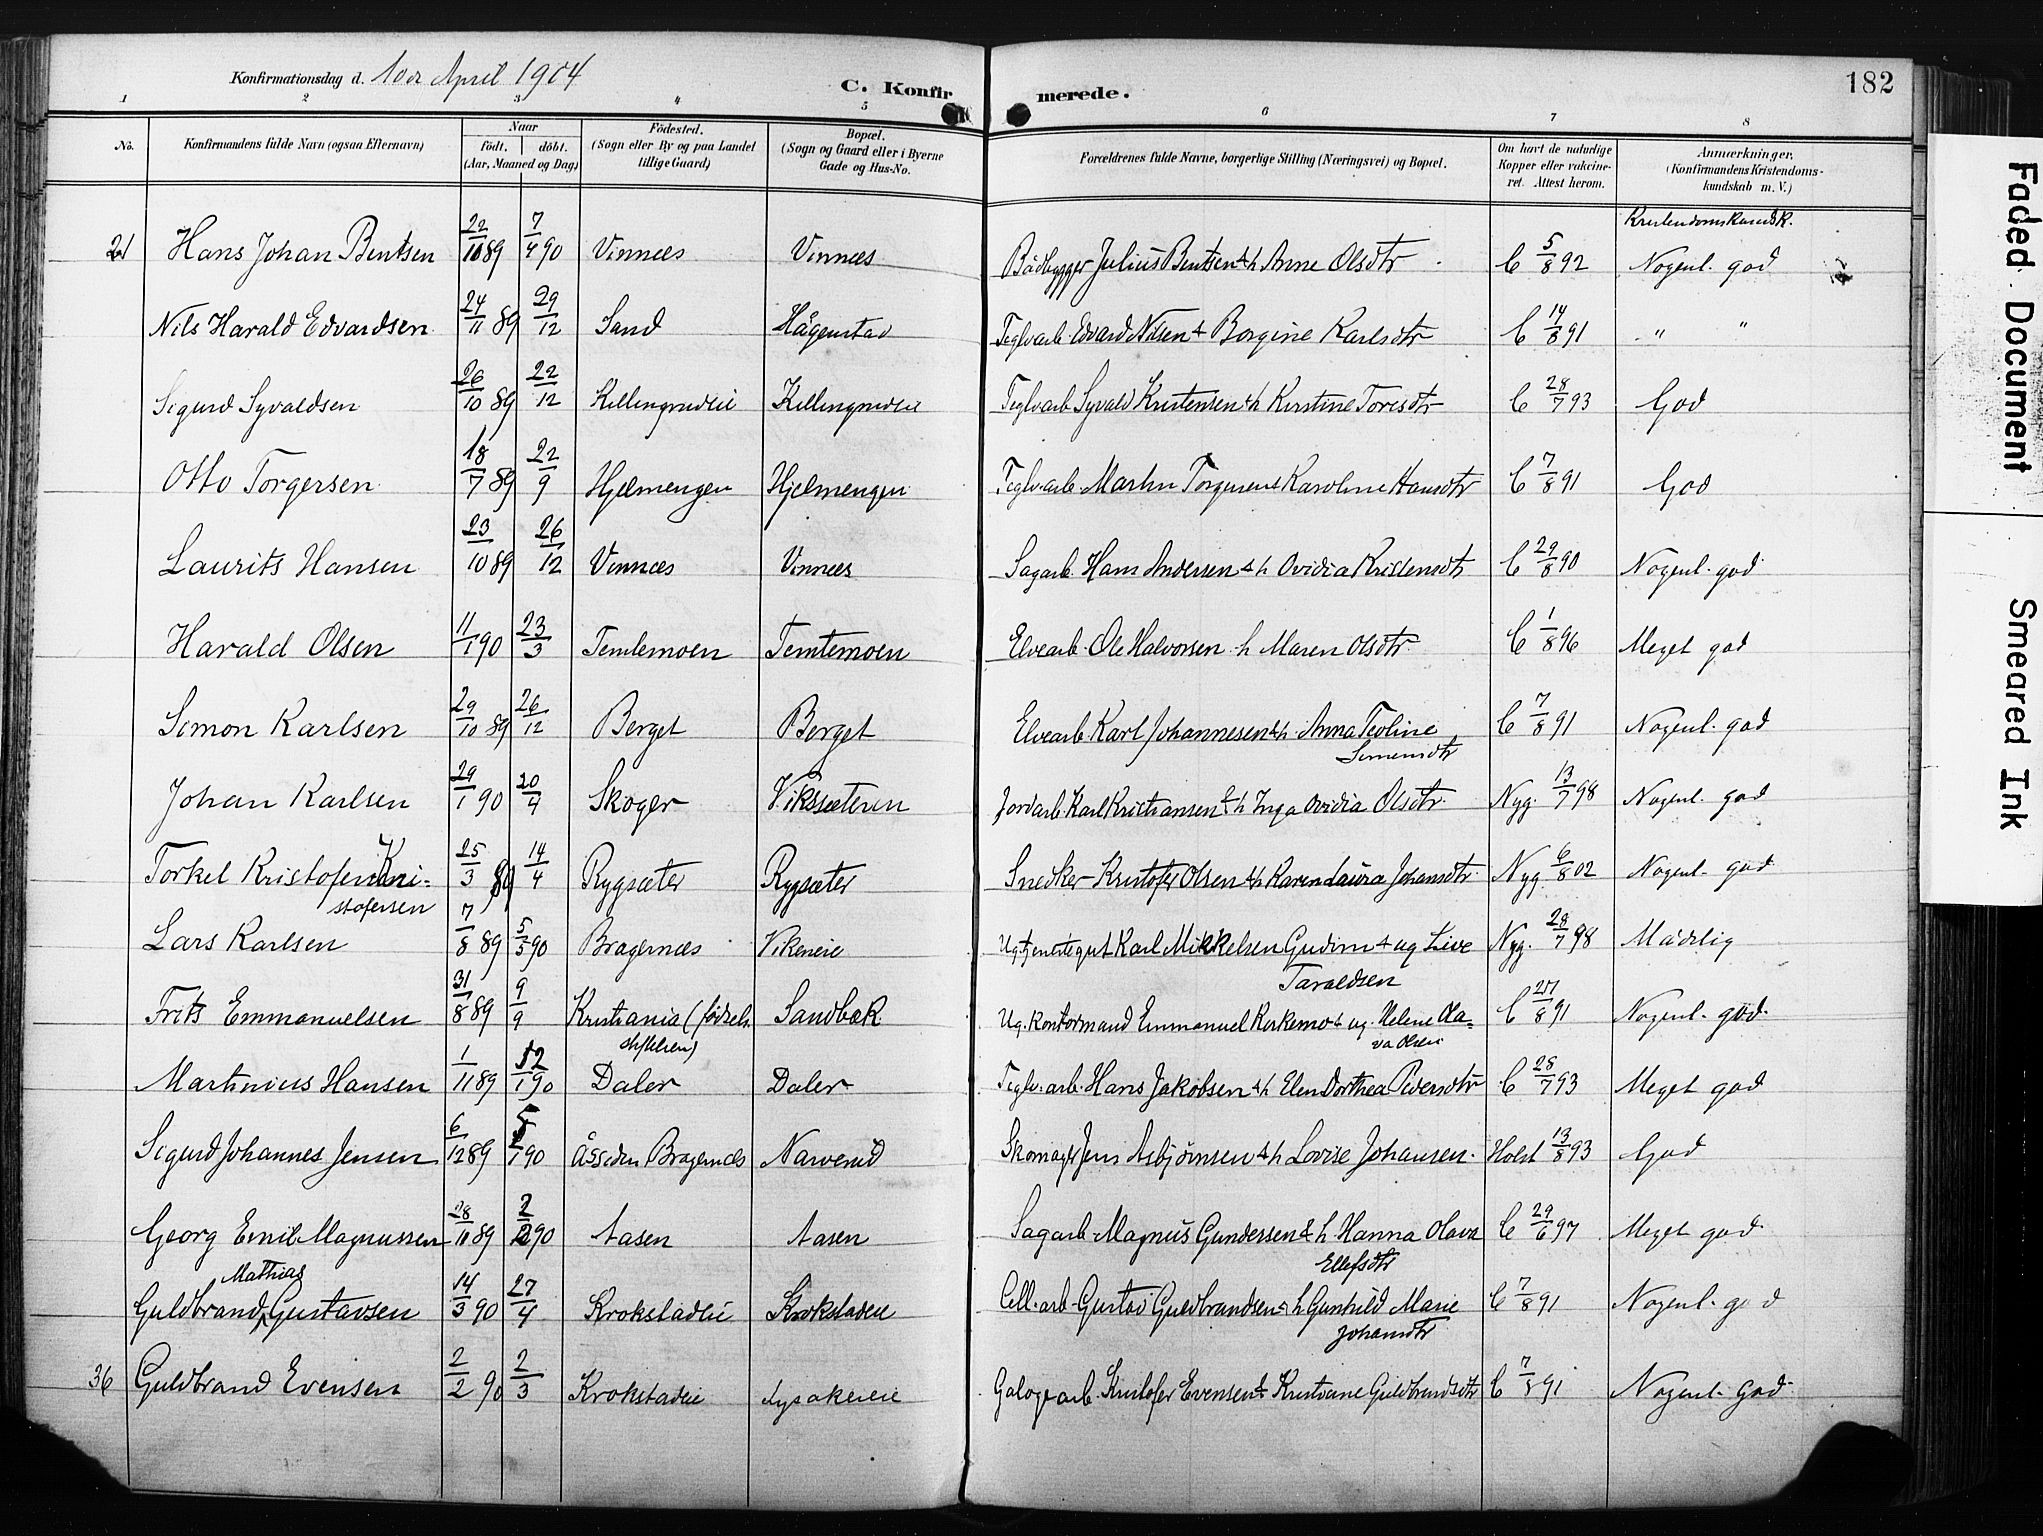 Konfirmationsdag d. 10de April 1904
C. Konfirmerede.
182
1 2 3 4 5 6 7 8
No. Konfirmandens fulde Navn (ogsaa Efternavn) Naar født. døbt. (Aar, Maaned og Dag) Fødested. (Sogn eller By og paa Landet tillige Gaard) Bopæl. (Sogn og Gaard eller i Byerne Gade og Hus-No. Forældrenes fulde Navne, borgerlige Stilling (Næringsvei) og Bopæl. Om havt de naturlige Kopper eller vakcineret. Attest herom. Anmærkninger. (Konfirmandens Kristendomskundskab m. V.)
Kristendomskundsk.
21 Hans Johan Bentsen 22/10 89 7/4 90 Vinnæs Vinnæs Bådbygger Julius Bentsen & h Anne Olsdtr C 5/8 92 Nogenl. god
Nils Harald Edvardsen 24/11 89 29/12 Sand Hågenstad Teglvarb. Edvard Nilsen & Borgine Karlsdtr C 14/8 91 " "
Sigurd Syvaldsen 26/10 89 22/12 Killingrudeie Killingrudeie Teglvarb Syvald Kristensen & h Kirstine Toresdtr C 28/7 93 God
Otto Torgersen 18/7 89 22/9 Hjelmengen Hjelmengen Teglv.arb. Martin Torgersen & Karoline Hansdtr C 7/8 91 God
Laurits Hansen 23/10 89 26/12 Vinnæs Vinnæs Sagarb. Hans Andersen & h Ovidia Kristensdtr C 29/8 90 Nogenl. god
Harald Olsen 11/1 90 23/3 Temtemoen Temtemoen Elvearb. Ole Halvorsen h Maren Olsdtr. C 1/8 96 Meget god
Simon Karlsen 29/10 89 26/12 Berget Berget Elvearb Karl Johannesen & h. Anna Teoline C 7/8 91 Nogenl. god
Simensdtr
Johan Karlsen 29/1 90 20/4 Skoger Vikssæteren Jordarb. Karl Kristiansen & h Inga Ovidia Olsdtr. Nyg. 13/7 98 Nogenl. god
Torkel Kristofer Kri= 25/3 89 14/4 Rygsæter Rygsæter Snedker Kristofer Olsen & h Karen Laura Johansdtr Nyg. 6/8 02 Nogenl. god
stofersen
Lars Karlsen 7/8 89 5/5 90 Bragernæs Vikeneie Ug. tjenestegut Karl Mikkelsen Gudim & ug Live Nyg. 28/7 98 Mådelig
Taraldsen
Frits Emmanuelsen 31/8 89 9/9 Kristiania (fødsels Sandbæk Ug. Kontormand Emmanuel Kirkemo & ug. Helene Ola= C /8 91 Nogenl. god.
stiftelsen) va Olsen
Martinius Hansen 1/11 89 /1 90 Daler Daler Teglv.arb. Hans Jakobsen & h Elen Dorthea Pedersdtr C 28/7 93 Meget god
Sigurd Johannes Jensen 6/12 89 5/1 90 Åssiden Bragernæs Narverud Skomager Jens Asbjørnsen & h Lovise Johansen. Holst 13/8 93 God
Georg Emil Magnussen 28/11 89 2/2 90 Aasen Aasen Sagarb. Magnus Gundersen & h. Hanna Olava C 29/6 97 Meget god
Ellefsdtr
Mathias
Guldbrand Gustavsen 14/3 90 27/4 Krokstadeie Krokstadeie Cell.arb. Gustav Guldbrandsen & h Gunhild Marie C 7/8 91 Nogenl. god
Johansdtr
36 Guldbrand Evensen 2/2 90 2/3 Krokstadeie Lysakereie Galogearb. Kristofer Evensen & Kristiane Guldbrandsdtr C 7/8 91 Nogenl. God
Faded Document
Smeared Ink